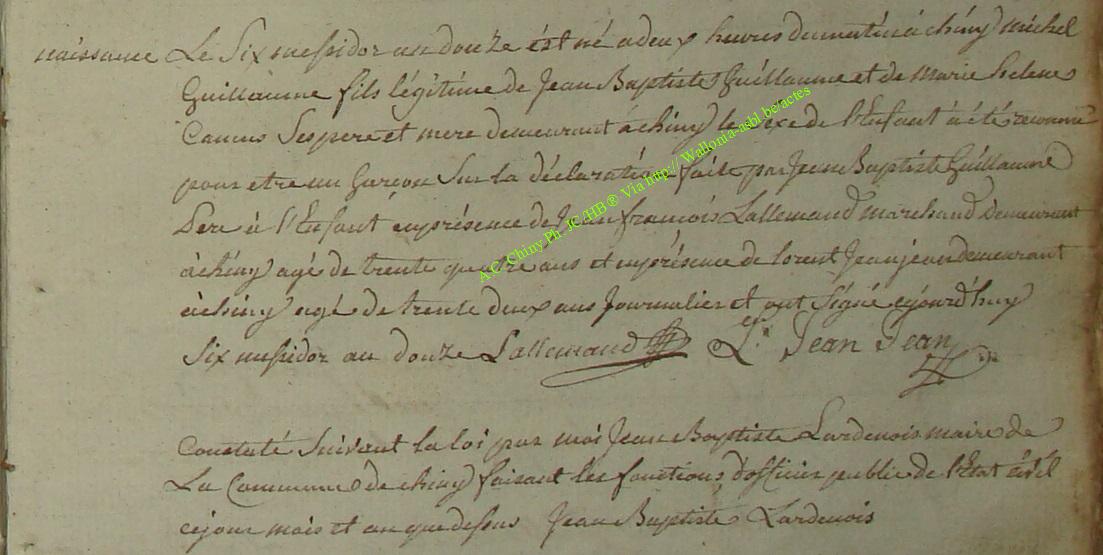 naissance Le Six messidor an douze ést né a deux heures du matin á chiny michel
Guillaume fils légitime de Jean Baptiste Guillaume et de Marie helene
Camus Ses pere et mere demeurant á chiny le sexe de l'Enfant à été reconnu
pour etre un Garçon Sur la déclaration faite par Jean Baptiste Guillaume
Pere á l'Enfant en présence de Jean francois Lallemand marchand demeurant
á chiny agé de trente quatre ans et en présence de lorent Jeanjean demeurant
á chiny agé de trente deux ans Journalier et ont Signé cejourd'huy
Six messidor an douze Lallemand L. Jean Jean
Constaté Suivant la loi par moi Jean Baptiste Lardenois maire de
La Commune de chiny faisant les fonctions d'officier public de l'Etat civil
ce jour mois et an que dessus Jean Baptiste Lardenois
A.C. Chiny Ph. JC/HB ® Via http:// Wallonia-asbl.be/actes